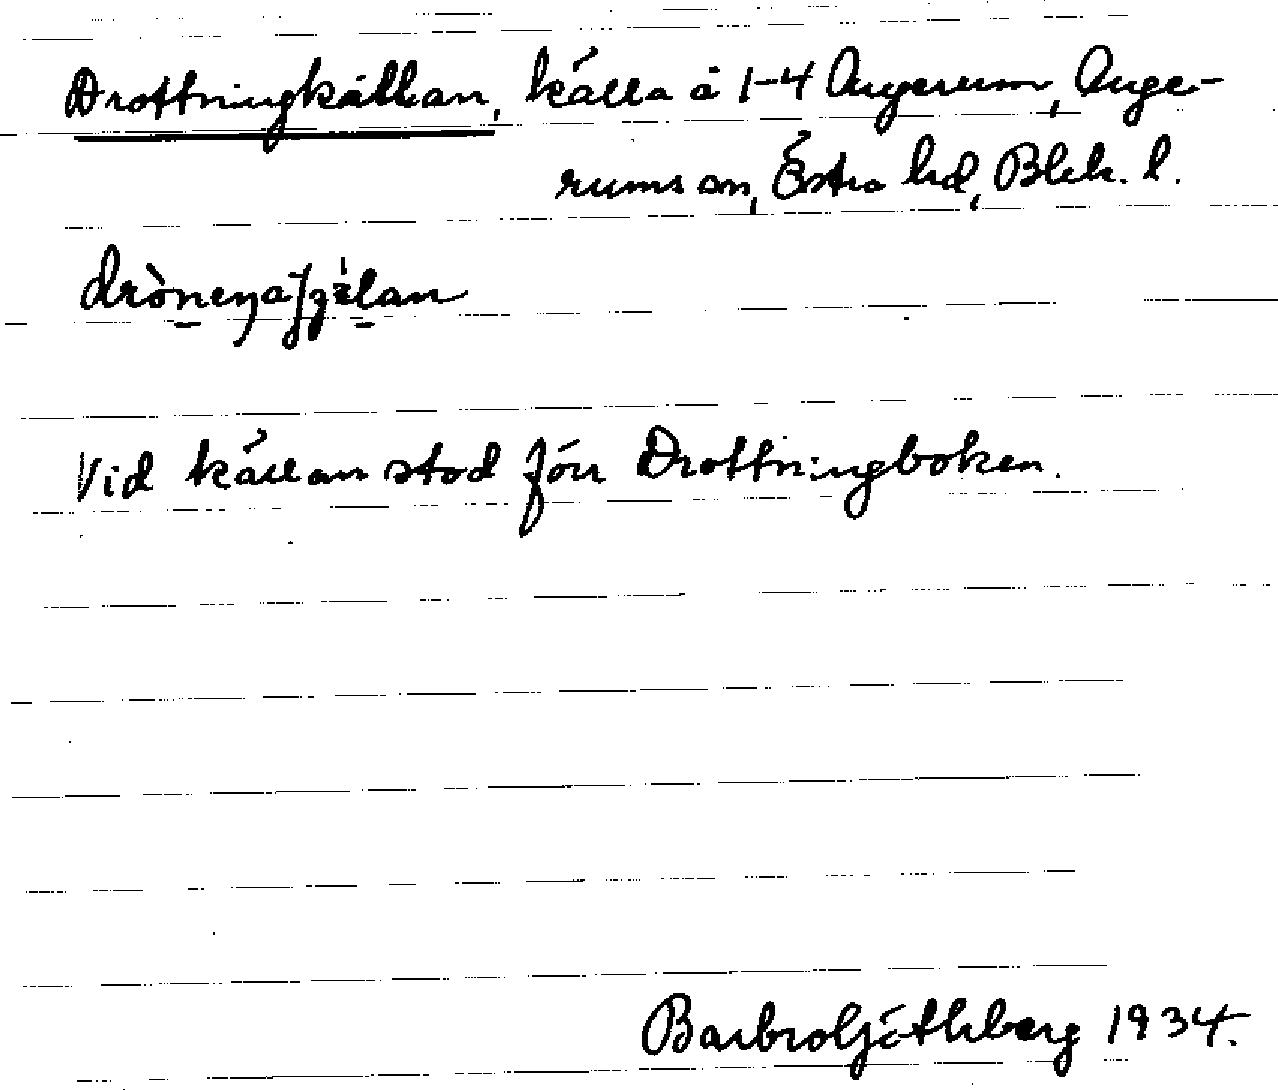 Drottningkällan, källa å 1-4 Augerum, Auge-
rums sn, Östra hd, Blek. l.
Vid källan stod förr Drottningboken.
Barbro Göthberg 1934.